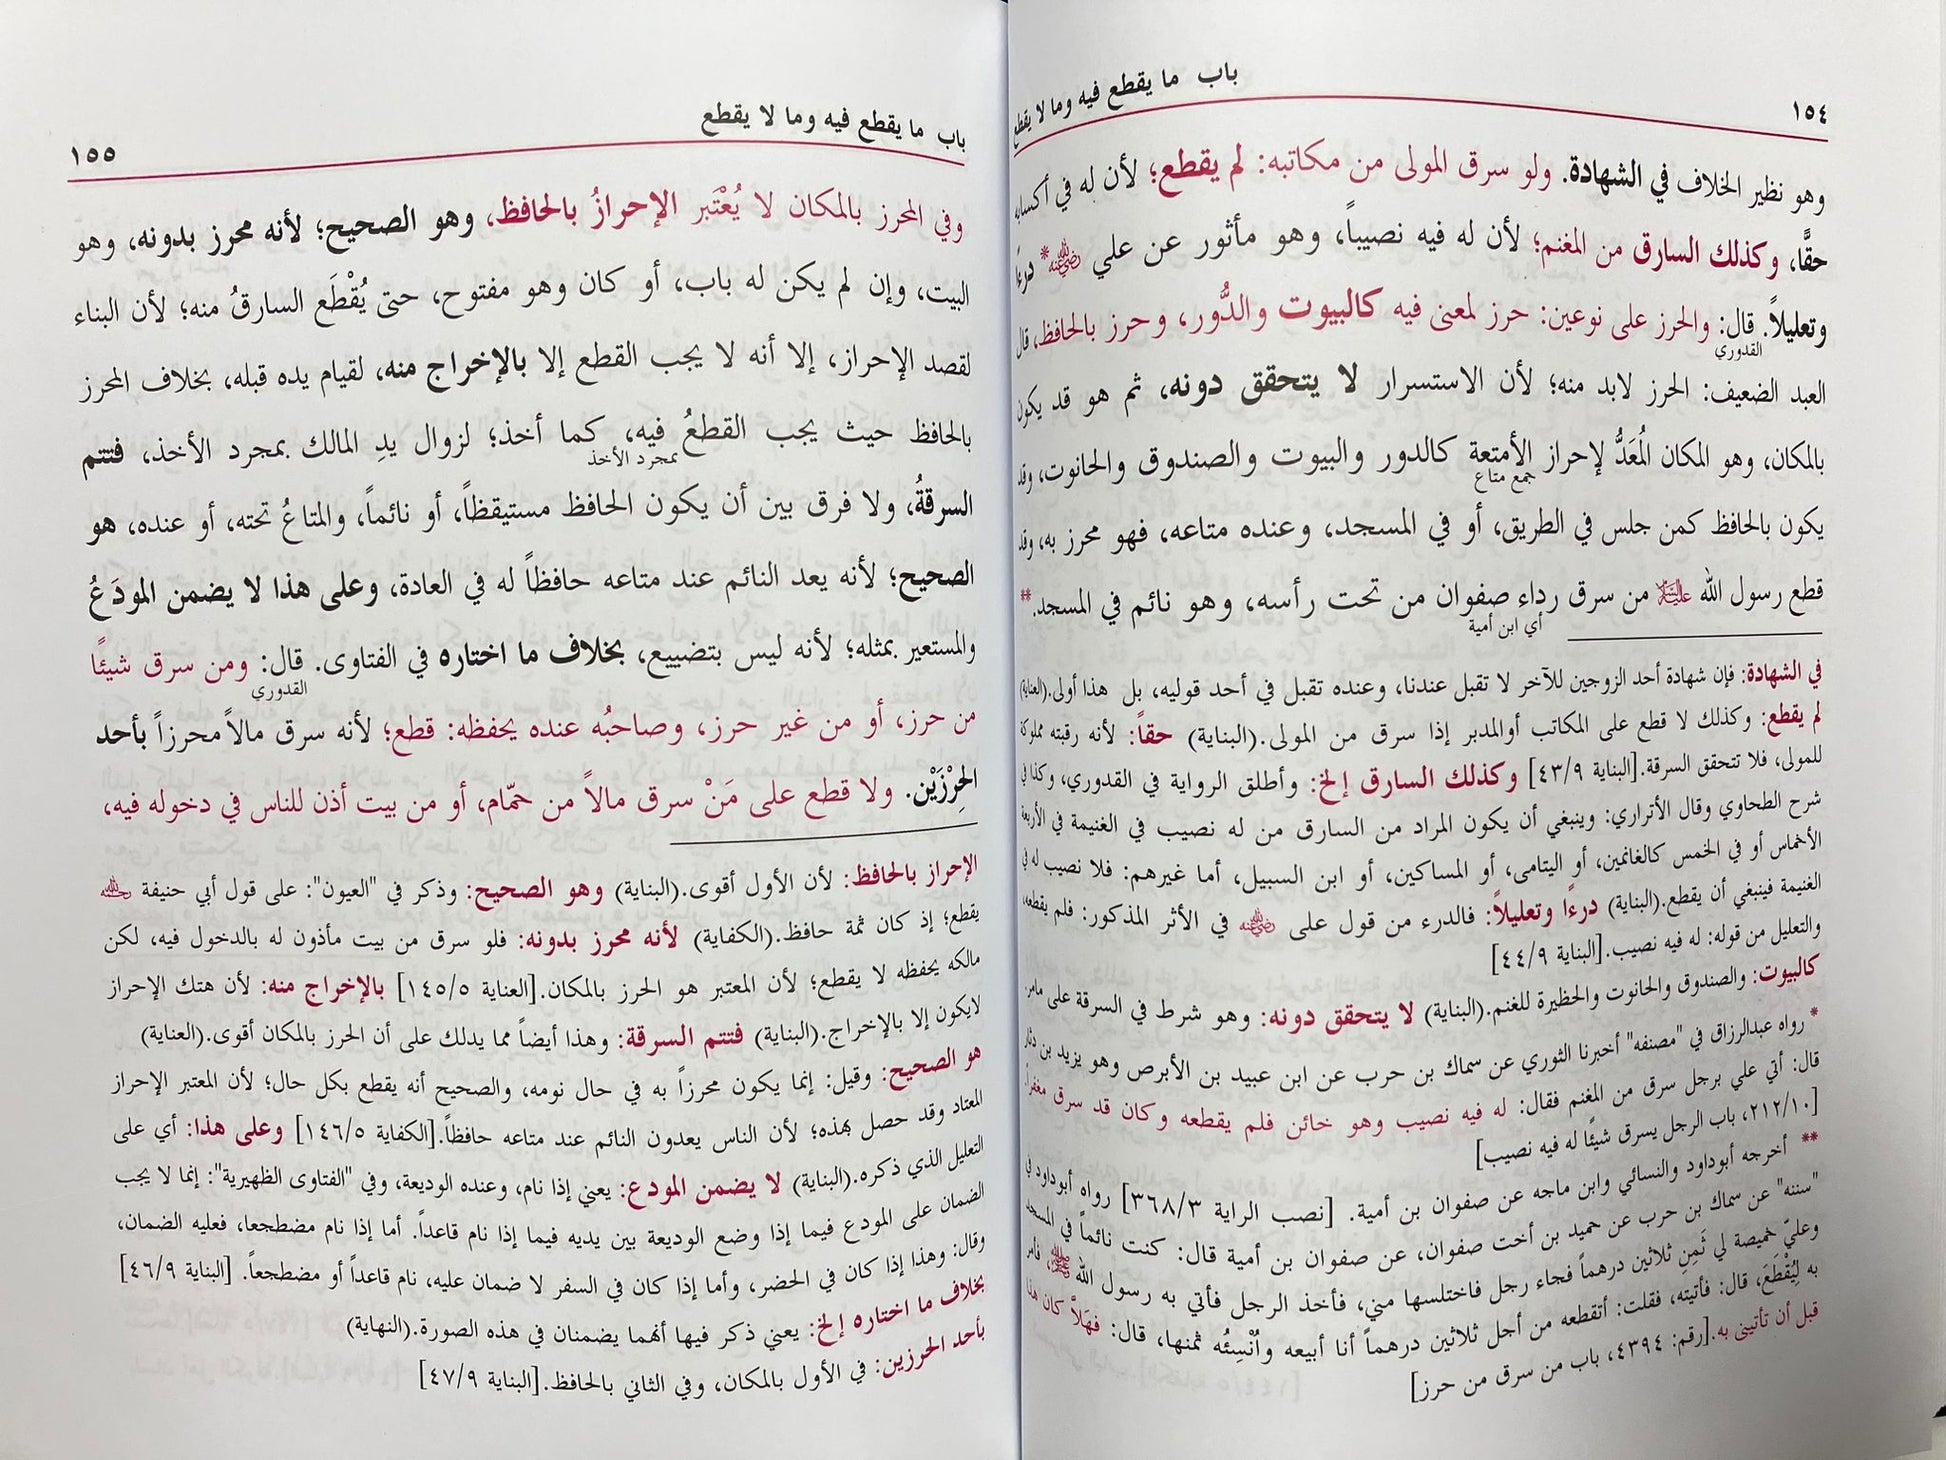 باب ما يقطع فيه وما لا يقطع
١٥٤
وهو نظير الخلاف في الشهادة. ولو سرق المولى من مكاتبه: لم يقطع؛ لأن له في أكسابه
حقًّا، وكذلك السارق من المغنم؛ لأن له فيه نصيباً، وهو مأثور عن علي رضي الله عنه* درءًا
وتعليلاً. قال: والحرز على نوعين: حرز لمعنى فيه كالبيوت والدُّور، وحرز بالحافظ، قال
القدوري
العبد الضعيف: الحرز لابد منه؛ لأن الاستسرار لا يتحقق دونه، ثم هو قد يكون
بالمكان، وهو المكان المُعَدُّ لإحراز الأمتعة كالدور والبيوت والصندوق والحانوت، وقد
جمع متاع
يكون بالحافظ كمن جلس في الطريق، أو في المسجد، وعنده متاعه، فهو محرز به، وقد
قطع رسول الله عليه السلام من سرق رداء صفوان من تحت رأسه، وهو نائم في المسجد.**
أي ابن أمية
في الشهادة: فإن شهادة أحد الزوجين للآخر لا تقبل عندنا، وعنده تقبل في أحد قوليه، بل هذا أولى.(العناية)
لم يقطع: وكذلك لا قطع على المكاتب أوالمدبر إذا سرق من المولى.(البناية) حقاً: لأنه رقبته مملوكة
للمولى، فلا تتحقق السرقة.[البناية ٤٣/٩] وكذلك السارق إلخ: وأطلق الرواية في القدوري، وكذا في
شرح الطحاوي وقال الأتراري: وينبغي أن يكون المراد من السارق من له نصيب في الغنيمة في الأربعة
الأخماس أو في الخمس كالغانمين، أو اليتامى، أو المساكين، أو ابن السبيل، أما غيرهم: فلا نصيب له في
الغنيمة فينبغي أن يقطع.(البناية) درءًا وتعليلاً: فالدرء من قول على رضي الله عنه في الأثر المذكور: فلم يقطعه،
والتعليل من قوله: له فيه نصيب.[البناية ٤٤/٩]
كالبيوت: والصندوق والحانوت والحظيرة للغنم.(البناية) لا يتحقق دونه: وهو شرط في السرقة على مامر.
* رواه عبدالرزاق في "مصنفه" أخبرنا الثوري عن سماك بن حرب عن ابن عبيد بن الأبرص وهو يزيد بن دثار
قال: أتي علي برجل سرق من المغنم فقال: له فيه نصيب وهو خائن فلم يقطعه وكان قد سرق مغفراً.
[٢١٢/١٠، باب الرجل يسرق شيئًا له فيه نصيب]
** أخرجه أبوداود والنسائي وابن ماجه عن صفوان بن أمية. [نصب الراية ٣٦٨/٣] رواه أبوداود في
"سننه" عن سماك بن حرب عن حميد بن أخت صفوان، عن صفوان بن أمية قال: كنت نائماً في المسجد
وعليّ خميصة لي ثَمِنِ ثلاثين درهماً فجاء رجل فاختلسها مني، فأخذ الرجل فأتي به رسول الله صلى الله عليه وسلم، فأمر
به لِيُقْطَعَ، قال: فأتيته، فقلت: أتقطعه من أجل ثلاثين درهماً أنا أبيعه وأُنْسِئُه ثمنها، قال: فهَلاَّ كان هذا
قبل أن تأتيني به.[رقم: ٤٣٩٤، باب من سرق من حرز]
باب ما يقطع فيه وما لا يقطع
١٥٥
وفي المحرز بالمكان لا يُعْتَبر الإحرازُ بالحافظ، وهو الصحيح؛ لأنه محرز بدونه، وهو
البيت، وإن لم يكن له باب، أو كان وهو مفتوح، حتى يُقْطَع السارقُ منه؛ لأن البناء
لقصد الإحراز، إلا أنه لا يجب القطع إلا بالإخراج منه، لقيام يده قبله، بخلاف المحرز
بالحافظ حيث يجب القطعُ فيه، كما أخذ؛ لزوال يدِ المالك بمجرد الأخذ، فتتم
بمجرد الأخذ
السرقةُ، ولا فرق بين أن يكون الحافظ مستيقظاً، أو نائماً، والمتاعُ تحته، أو عنده، هو
الصحيح؛ لأنه يعد النائم عند متاعه حافظاً له في العادة، وعلى هذا لا يضمن المودَعُ
والمستعير بمثله؛ لأنه ليس بتضييع، بخلاف ما اختاره في الفتاوى. قال: ومن سرق شيئًا
القدوري
من حرز، أو من غير حرز، وصاحبُه عنده يحفظه: قطع؛ لأنه سرق مالاً محرزاً بأحد
الحِرْزَيْن. ولا قطع على مَنْ سرق مالاً من حمّام، أو من بيت أذن للناس في دخوله فيه،
الإحراز بالحافظ: لأن الأول أقوى.(البناية) وهو الصحيح: وذكر في "العيون": على قول أبي حنيفة رحمه الله
يقطع؛ إذ كان ثمة حافظ.(الكفاية) لأنه محرز بدونه: فلو سرق من بيت مأذون له بالدخول فيه، لكن
مالكه يحفظه لا يقطع؛ لأن المعتبر هو الحرز بالمكان.[العناية ١٤٥/٥] بالإخراج منه: لأن هتك الإحراز
لايكون إلا بالإخراج.(البناية) فتتم السرقة: وهذا أيضاً مما يدلك على أن الحرز بالمكان أقوى.(العناية)
هو الصحيح: وقيل: إنما يكون محرزاً به في حال نومه، والصحيح أنه يقطع بكل حال؛ لأن المعتبر الإحراز
المعتاد وقد حصل بهذه؛ لأن الناس يعدون النائم عند متاعه حافظاً.[الكفاية ١٤٦/٥] وعلى هذا: أي على
التعليل الذي ذكره.(البناية) لا يضمن المودع: يعني إذا نام، وعنده الوديعة، وفي "الفتاوى الظهيرية": إنما لا يجب
الضمان على المودع فيما إذا وضع الوديعة بين يديه فيما إذا نام قاعداً. أما إذا نام مضطجعا، فعليه الضمان،
وقال: وهذا إذا كان في الحضر، وأما إذا كان في السفر لا ضمان عليه، نام قاعداً أو مضطجعاً. [البناية ٤٦/٩]
بخلاف ما اختاره إلخ: يعني ذكر فيها أنهما يضمنان في هذه الصورة.(النهاية)
بأحد الحرزين: في الأول بالمكان، وفي الثاني بالحافظ.[البناية ٤٧/٩]